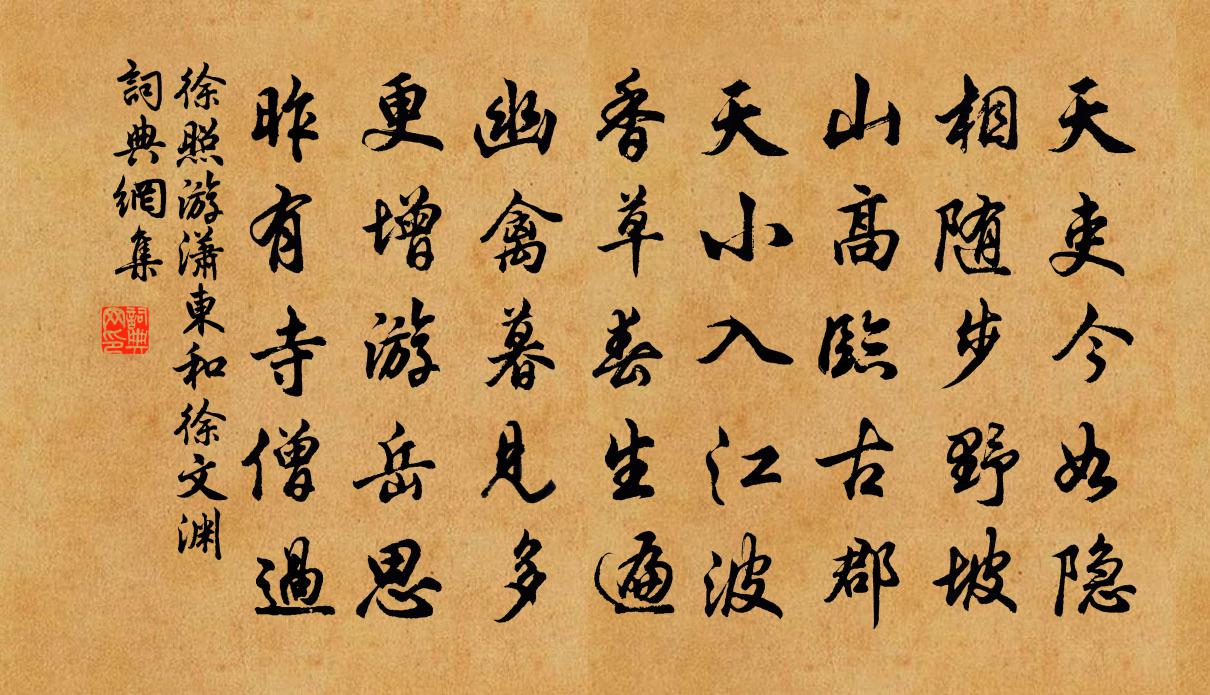 天吏今如隐
相随步野坡
山高臨古郡
天小入江波
香草春生遍
幽禽暮見多
更增游岳思
昨有寺僧過
徐照游瀟東和徐文渊
詞典網集
詞典网印